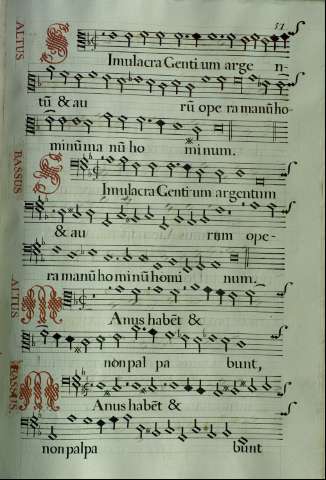 51
ALTUS
SImulacra Genti um arge n-
tũ & au rũ ope ra manũ ho
minũ ma nũ ho minum.
BASSUS
SImulacra Genti um argentum
& au rum ope-
ra manũ ho minũ homi num.
ALTUS
MAnus habẽt &
non pal pa bunt,
BASSUS
MAnus habẽt &
non palpa bunt